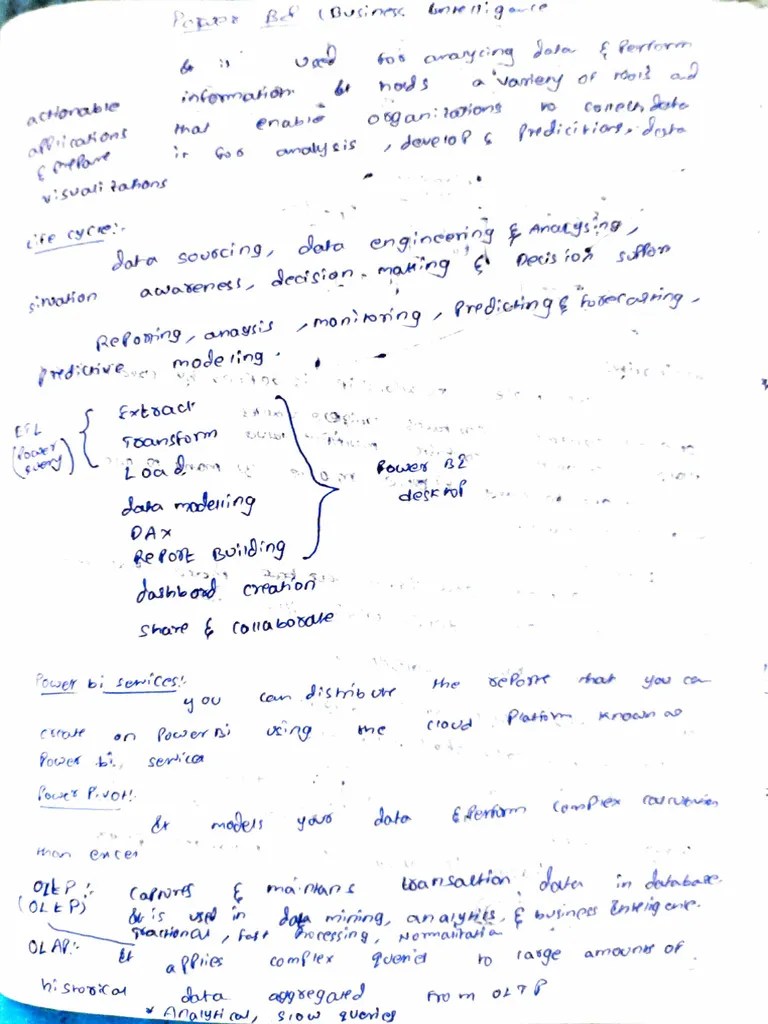 Power BI (Business Intelligence
It is used for analycing data & Perform
actionable information. It holds a variety of tools ad
applications that enable organizations to collect data
& prepare it for analysis, develop & Predicitions, data
visualizations
Life cycle:-
data sourcing, data engineering & Analysing,
situation awareness, decision making & Decision support
Reporting, anaysis, monitoring, Predicting & forecasting,
predictive modeling.
ETL
(Power
query)
Extract
Transform
Load
data modelling
DAX
Report Building
Power BI
desktop
dashbord creation
share & collaborate
Power bi services:-
you can distribute the reports that you can
create on Power Bi using the cloud Platform known as
Power bi service
Power Pivot:-
It models your data & Perform complex
than excel
OLTP:- Captures & maintans transaction data in database.
(OLTP) It is used in data mining, analytics, & business Intelligence.
fast Processing,
OLAP:- It applies complex queries to large amounts of
historical data aggregated from OLTP
* Analytical, slow queries